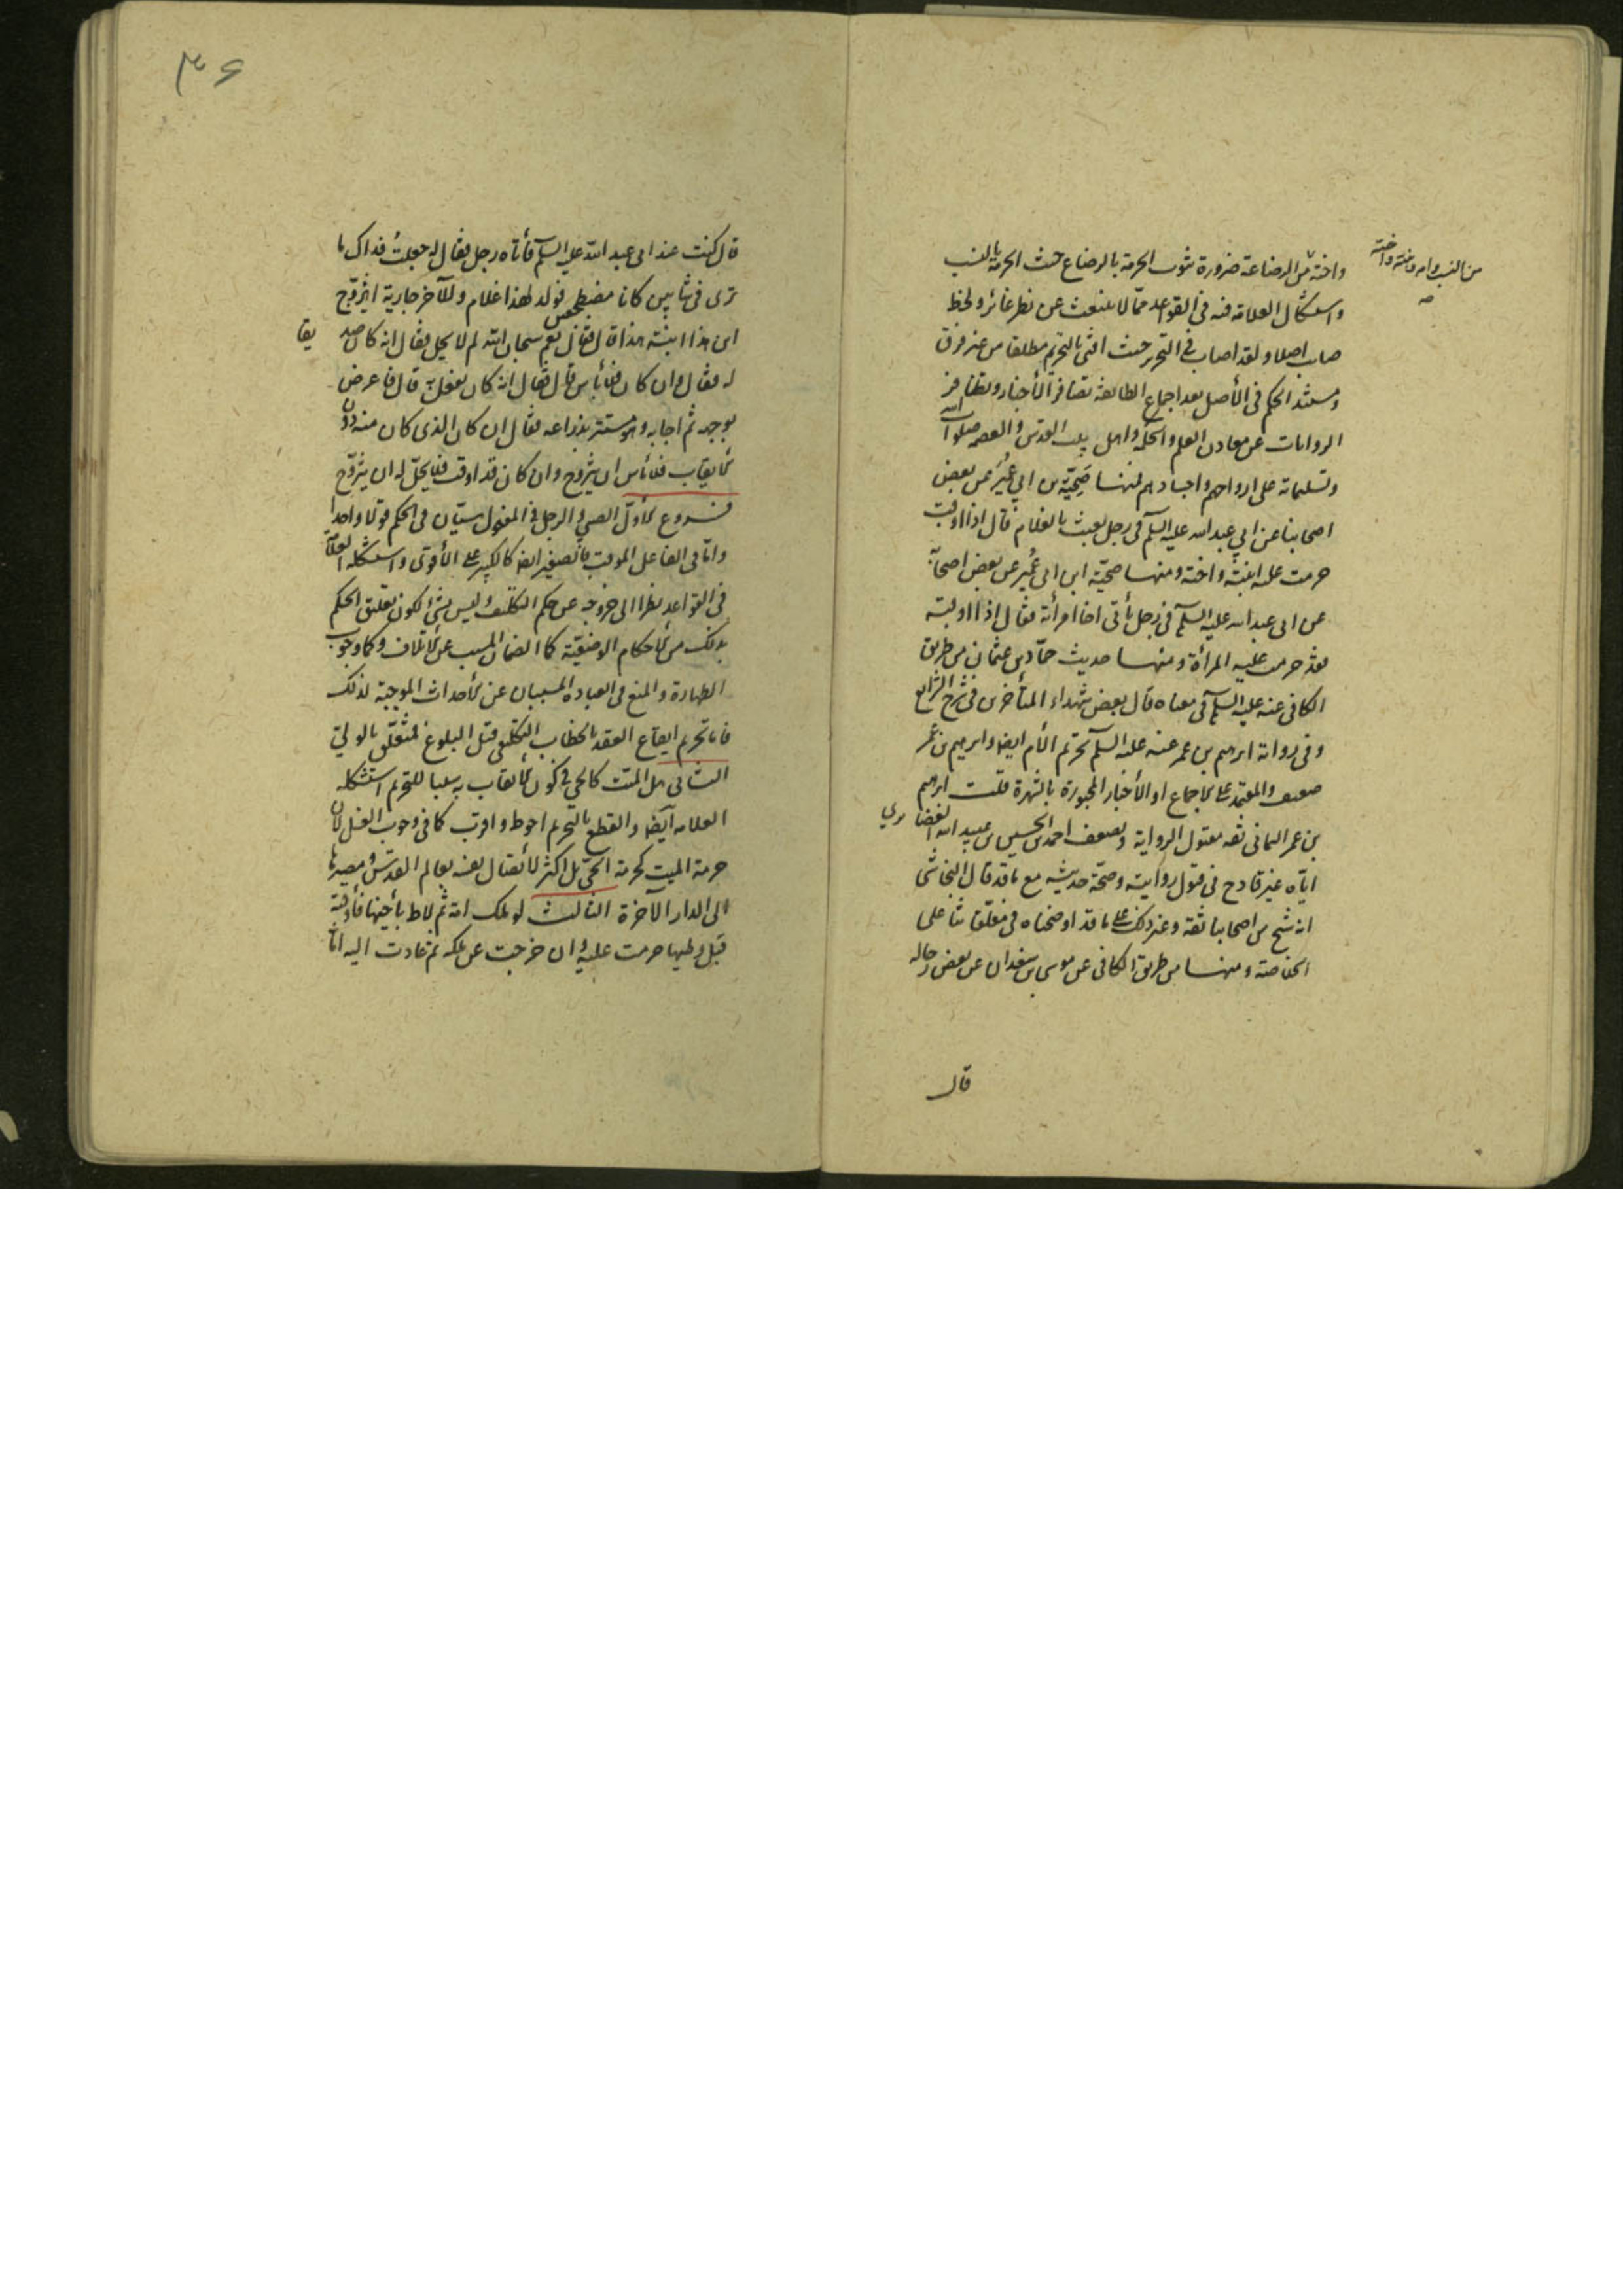 من النسب وامه وبنته واخته
صه
واخته من الرضاعة ضرورة ثبوت الحرمة بالرضاع حيث الحرمة بالنسب
واستشكال العلامة فيه في القواعد مما لا ينبعث عن نظر غائر ولحظ
صايب اصلا ولقد اصاب في التحرير حيث افتى بالتحريم مطلقا من غير فرق
ومستند الحكم في الأصل بعد اجماع الطايفة تضافر الأخبار وتظافر
الروايات عن معادن العلم والحكمة واهل بيت القدس والعصمة صلوات الله
وتسليماته على ارواحهم واجسادهم فمنها صحيحة بن ابي عمير عن بعض
اصحابنا عن ابي عبد الله عليه السلم في رجل يعبث بالغلام قال اذا اوقب
حرمت عليه ابنته واخته ومنها صحيحة ابن ابي عمير عن بعض اصحابه
عن ابي عبد الله عليه السلم في رجل يأتي اخا امرأته فقال اذا اوقبه
فقد حرمت عليه المرأة ومنها حديث حماد بن عثمان من طريق
الكافي عنه عليه السلم في معناه قال بعض شهداء المتأخرين في شرح الشرايع
وفي رواية ابرهيم بن عمر عنه عليه السلم تحريم الأم ايضا وابرهيم بن عمر
ضعيف والمعتمد على الاجماع او الأخبار المجبورة بالشهرة قلت ابرهيم
بن عمر اليماني ثقة مقبول الرواية وتضعيف احمد بن الحسين بن عبيد الله الغضايري
اياه غير قادح في قبول روايته وصحة حديثه مع ما قد قال النجاشي
انه شيخ من اصحابنا ثقة وغير ذلك على ما قد اوضحناه في معلقاتنا على
الخلاصة ومنها من طريق الكافي عن موسى بن سعدان عن بعض رجاله
قال
٣۶
قال كنت عند ابي عبد الله عليه السلم فأتاه رجل فقال له جعلتُ فداك ما
ترى في شابين كانا مضطجعين فولد لهذا غلام وللآخر جارية ايتزوج
ابن هذا ابنة هذا قال فقال نعم سبحان الله لم لا يحل فقال انه كان صديقا
له فقال وان كان فلا بأس قال فقال انه كان يفعل به قال فاعرض
بوجهه ثم اجابه وهو مستتر بذراعه فقال ان كان الذي كان منه دون
الايقاب فلا بأس ان يتزوج وان كان قد اوقب فلا يحل له ان يتزوج
فروع الأول الصبي والرجل في المفعول سيّان في الحكم قولا واحدا
واما في الفاعل الموقب فالصغير ايضا كالكبير على الأقوى واستشكله العلامة
في القواعد نظرا الى خروجه عن حكم التكليف وليس بشئ لكون تعليق الحكم
بذلك من الأحكام الوضعية كما الضمان المسبب عن الاتلاف وكما وجوب
الطهارة والمنع في العبادة المسببان عن الأحداث الموجبة لذلك
فاما تحريم ايقاع العقد بالخطاب التكليفي قبل البلوغ فمتعلق بالولي
الثاني هل الميت كالحي في كون الايقاب به سببا للتحريم استشكله
العلامة ايضا والقطع بالتحريم احوط واقرب كما في وجوب الغسل لان
حرمة الميت كحرمة الحي بل اكثر لاتصال نفسه بعالم القدس ومصيرها
الى الدار الآخرة الثالث لو ملك امة ثم لاط بأخيها فأوقبه
قبل وطيها حرمت عليه وان خرجت عن ملكه ثم عادت اليه اما